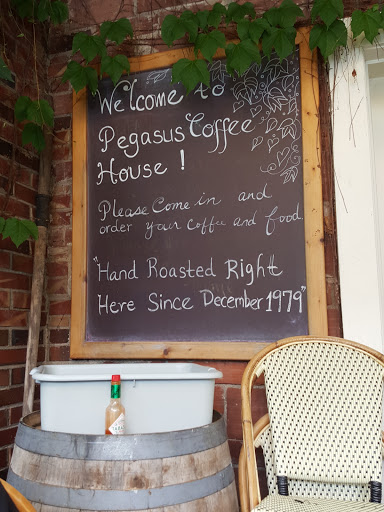 Welcome to
Pegasus Coffee
House!
Please Come in and
order your coffee and food.
"Hand Roasted Right
Here Since December 1979"